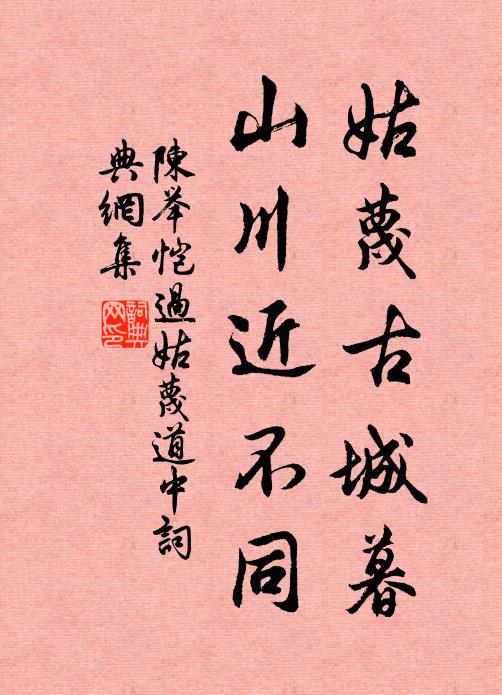 姑蔑古城暮
山川近不同
陳举愷過姑蔑道中詞
典網集
詞典
网印